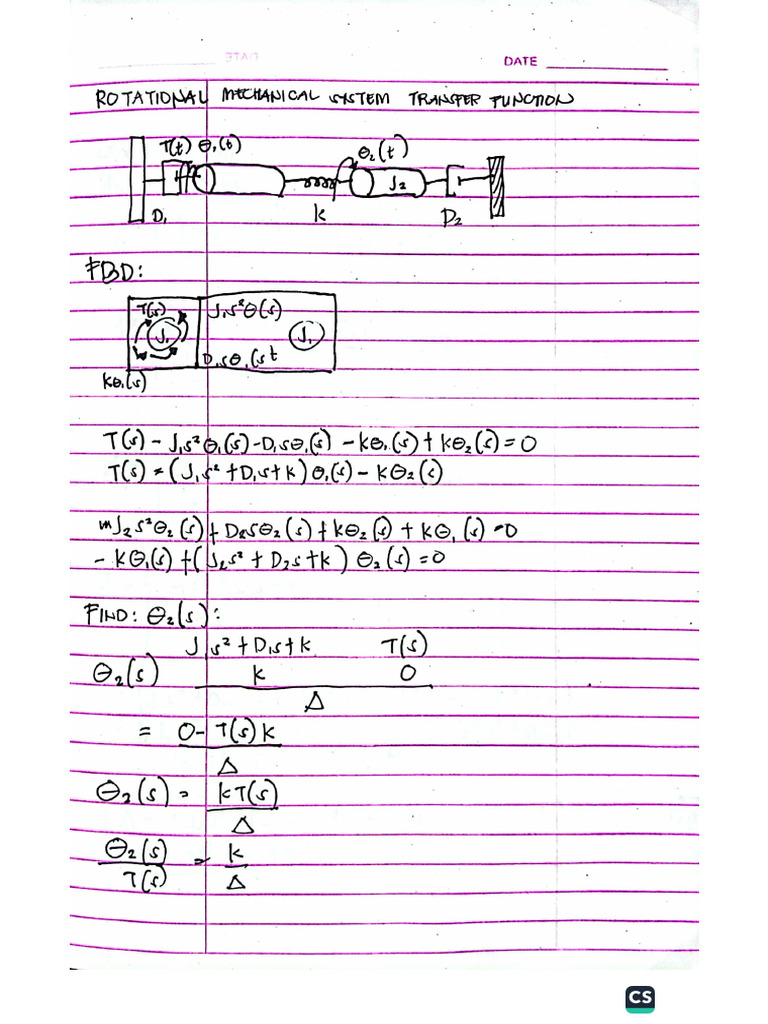 DATE
ROTATIONAL MECHANICAL SYSTEM TRANSFER FUNCTION
T(t) θ₁(t) θ₂(t)
J₂
D₁ K D₂
FBD:
T(s) J₁s²θ(s)
J₁ J₁
D₁sθ₁(s t
Kθ₁(s)
T(s) - J₁s²θ₁(s) - D₁sθ₁(s) - Kθ₁(s) + Kθ₂(s) = 0
T(s) = (J₁s² + D₁s + K) θ₁(s) - Kθ₂(s)
J₂s²θ₂(s) + D₂sθ₂(s) + Kθ₂(s) + Kθ₁(s) = 0
- Kθ₁(s) + (J₂s² + D₂s + K) θ₂(s) = 0
FIND: θ₂(s):
J s² + D₁s + K T(s)
θ₂(s) K 0
Δ
= 0 - T(s) K
Δ
θ₂(s) = KT(s)
Δ
θ₂(s) = K
T(s) Δ
CS